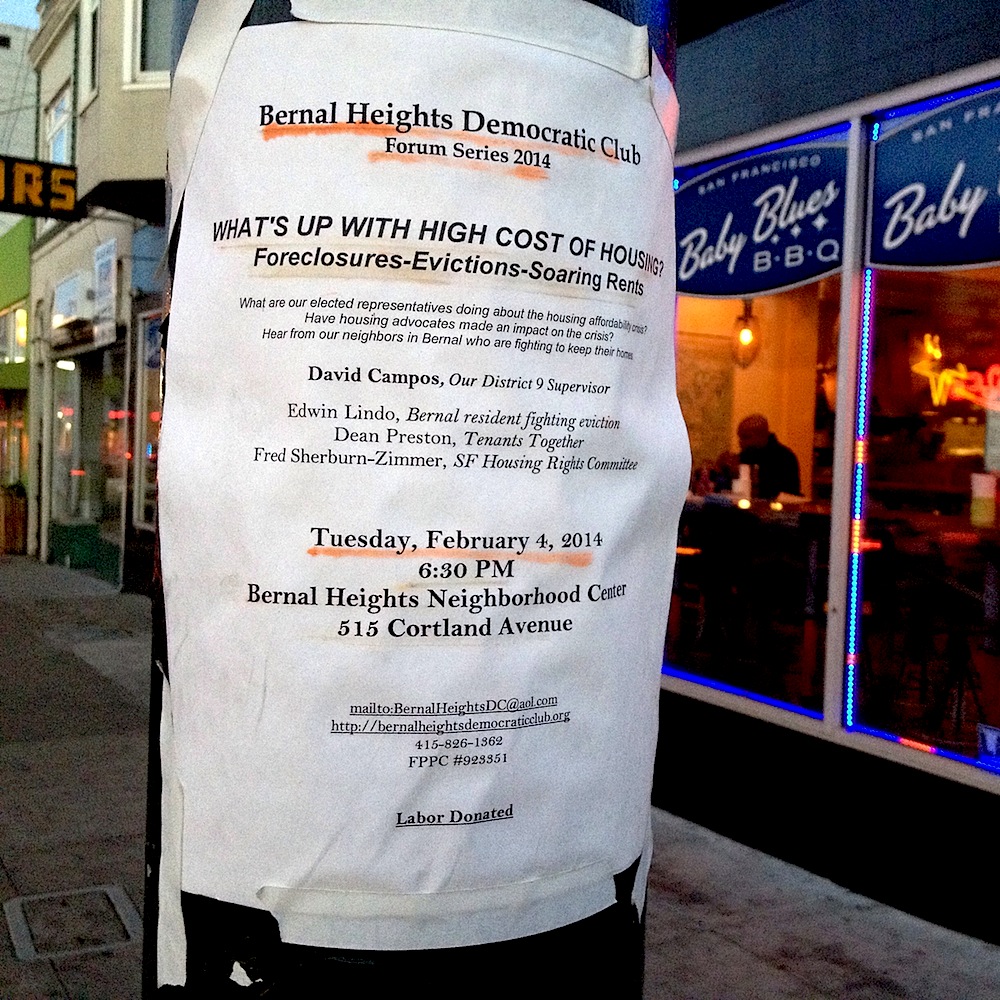 Bernal Heights Democratic Club
Forum Series 2014
WHAT'S UP WITH HIGH COST OF HOUSING?
Foreclosures-Evictions-Soaring Rents
What are our elected representatives doing about the housing affordability crisis?
Have housing advocates made an impact on the crisis?
Hear from our neighbors in Bernal who are fighting to keep their homes
David Campos, Our District 9 Supervisor
Edwin Lindo, Bernal resident fighting eviction
Dean Preston, Tenants Together
Fred Sherburn-Zimmer, SF Housing Rights Committee
Tuesday, February 4, 2014
6:30 PM
Bernal Heights Neighborhood Center
515 Cortland Avenue
mailto:BernalHeightsDC@aol.com
http://bernalheightsdemocraticclub.org
415-826-1362
FPPC #923351
Labor Donated
SAN FRANCISCO
Baby Blues
B·B·Q
SAN FRA
Baby
RS